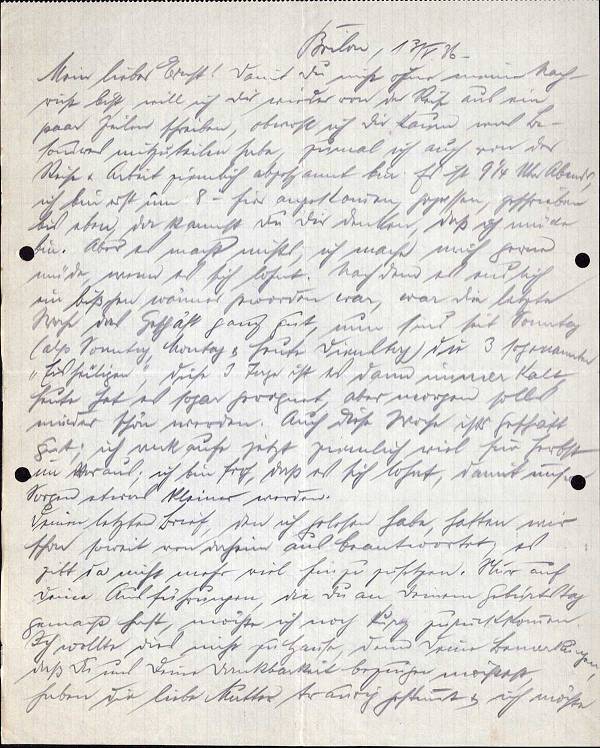 Brilon, 12/V 36.
Mein lieber Ernst! Damit Du nicht ohne meine Nach-
richt bist, will ich Dir wieder von der Reise aus ein
paar Zeilen schreiben, obwohl ich Dir kaum was be-
sonderes mitzuteilen habe, zumal ich auch von der
Reise & Arbeit ziemlich abgespannt bin. Es ist 9 1/4 Uhr Abends,
ich bin erst um 8 - hier angekommen, gegessen, geschrieben
bis eben, da kannst Du Dir denken, daß ich müde
bin. Aber es macht nichts, ich mache mich gerne
müde, wenn es sich lohnt. Nachdem es endlich
ein bißchen wärmer geworden war, war die letzte
Woche das Geschäft ganz gut, nun sind seit Sonntag
(also Sonntag, Montag & heute Dienstag) die 3 sogenannten
"Eisheiligen", diese 3 Tage ist es dann immer kalt,
heute hat es sogar geregnet, aber morgen solls
wieder schön werden. Auch diese Woche ists Geschäft
gut, ich verkaufe jetzt ziemlich viel für Herbst
im Voraus, ich bin froh, daß es sich lohnt, damit unsere
Sorgen etwas kleiner werden.
Deinen letzten Brief, den ich gelesen habe, hatten wir
schon soweit von daheim aus beantwortet, es
gibt da nicht mehr viel hinzu zusetzen. Nur auf
Deine Ausführungen, die Du an Deinem Geburtstag
gemacht hast, möchte ich noch kurz zurückkommen.
Ich wollte dies nicht zuhause, denn Deine Bemerkungen,
daß Du uns Deine Dankbarkeit bezeugen möchtest,
haben die liebe Mutter traurig gestimmt & ich möchte